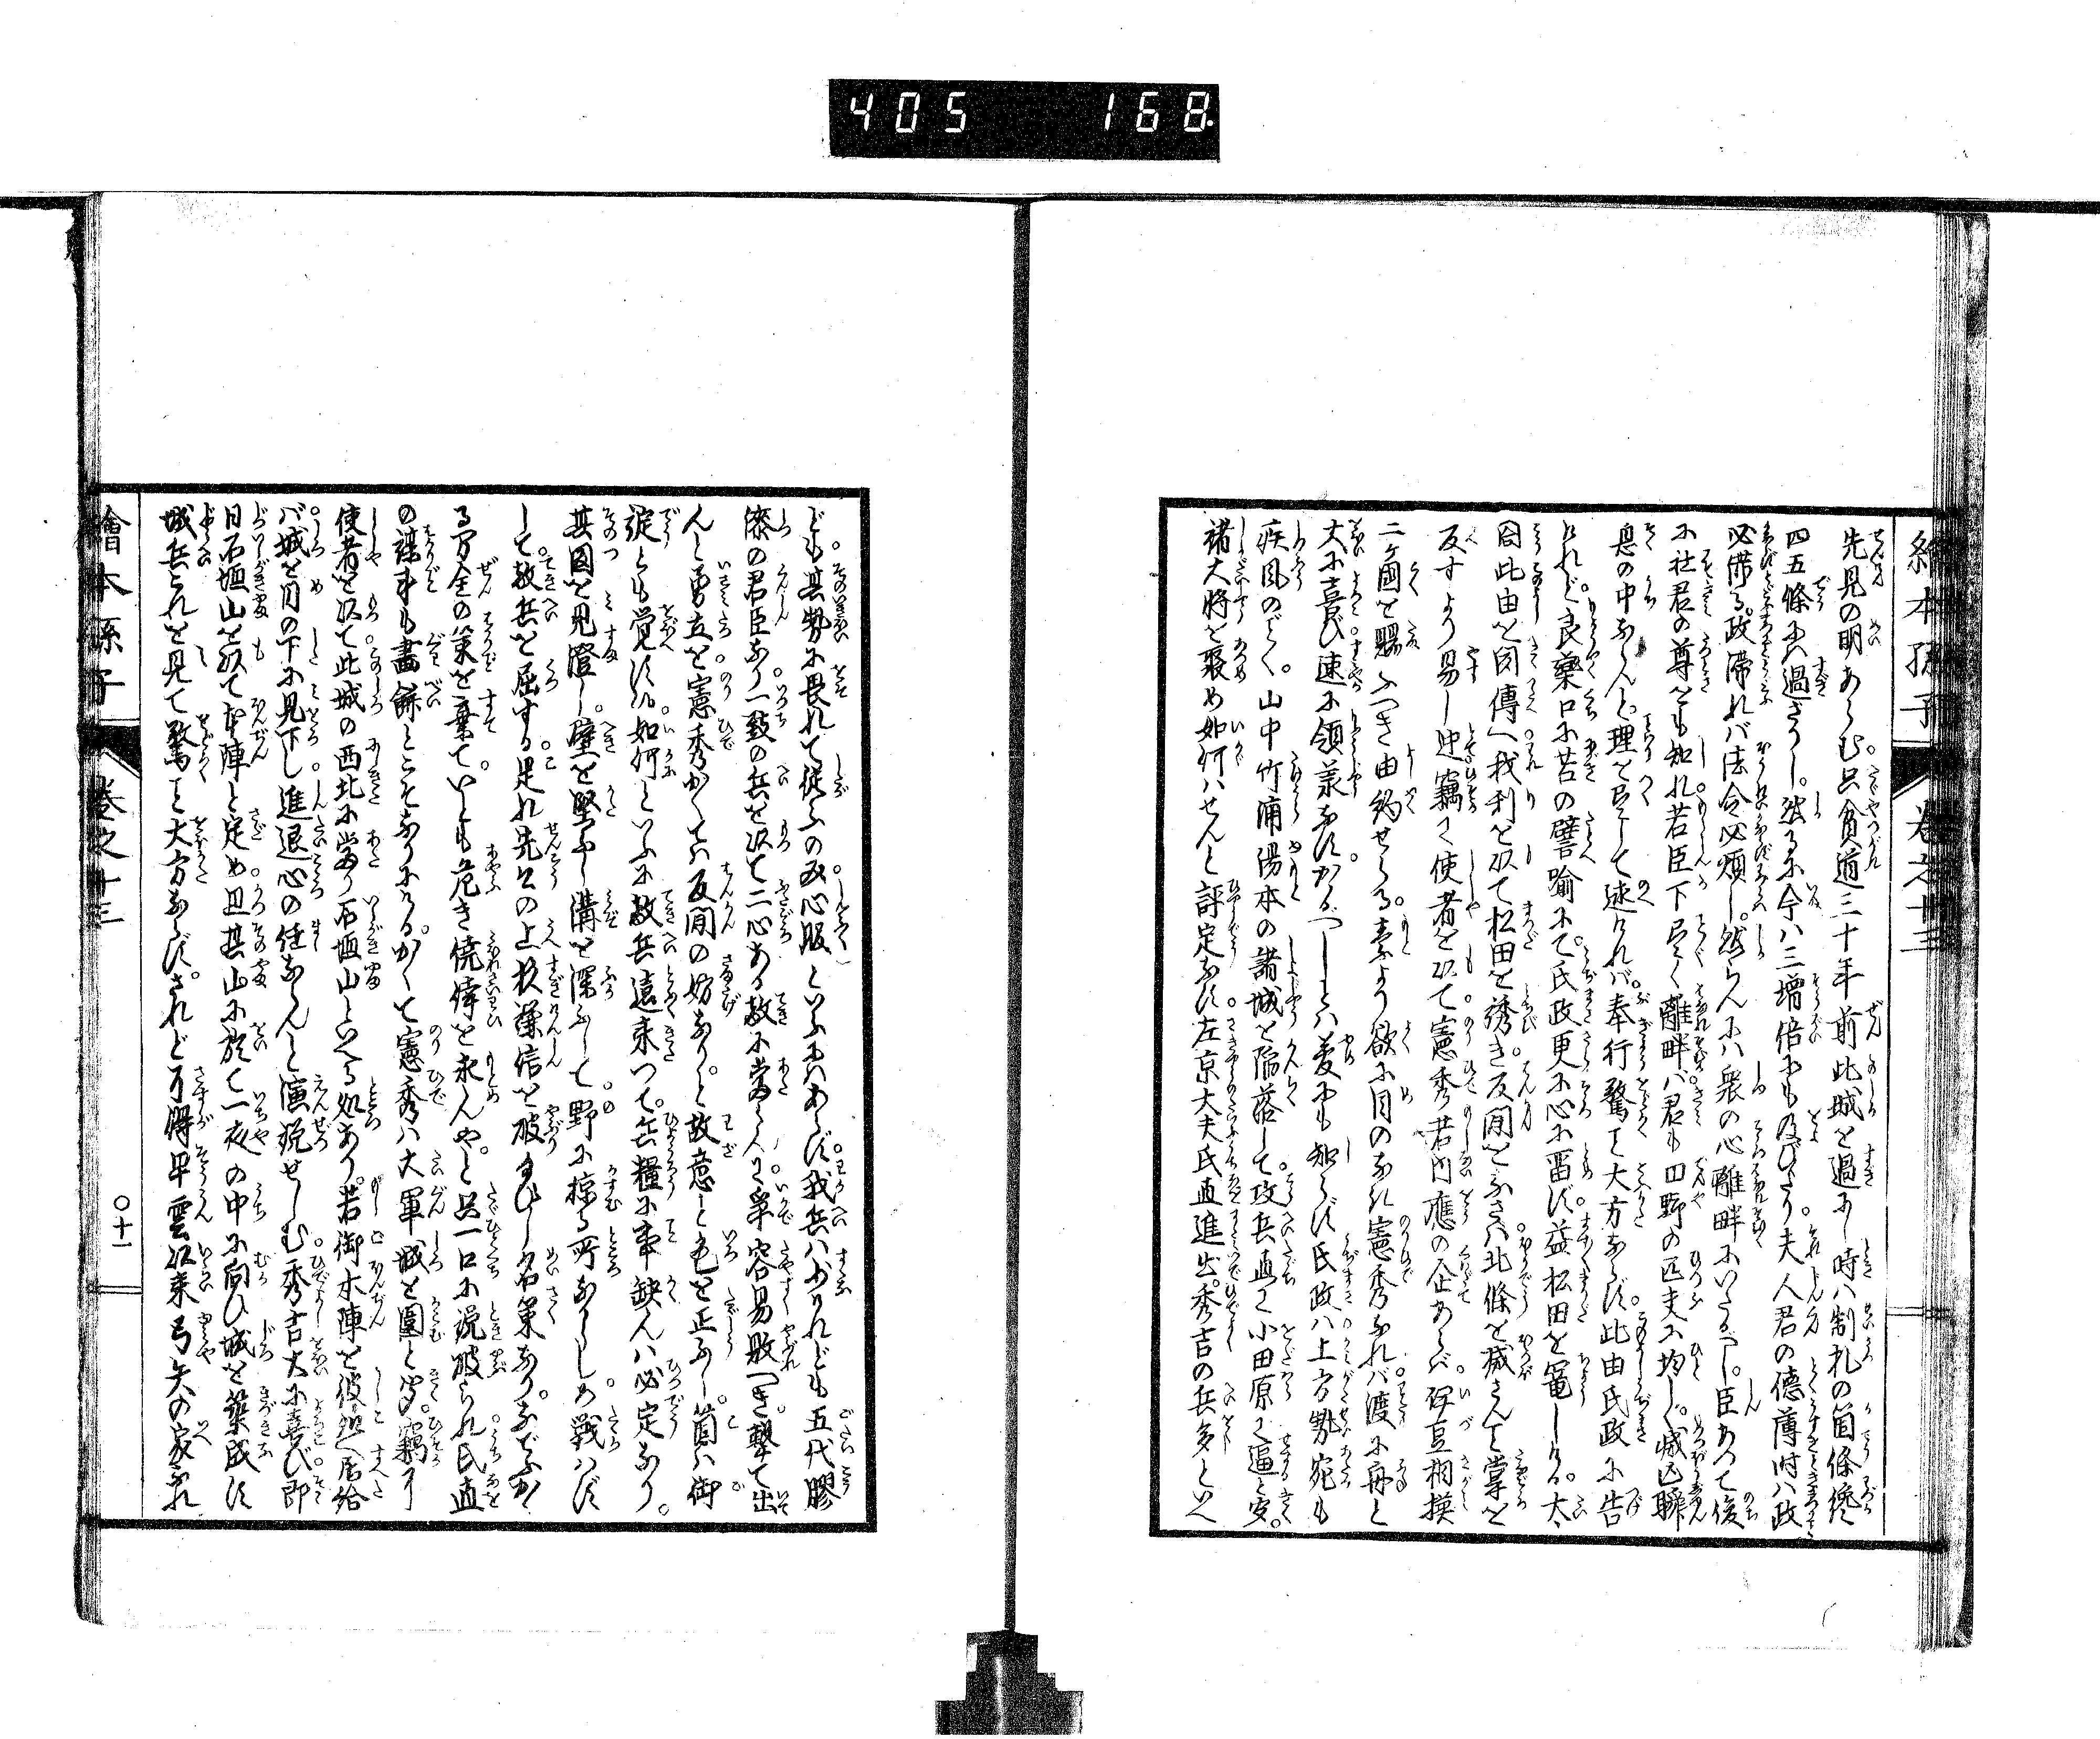 405 168.
繪本孫子 卷之十三
先見の明あらむ。只貧道三十年前此城を過ぎし時ハ制札の箇條纔
四五條に過ざりし。然るに今ハ三増倍にも及びたり。夫人君の德薄時ハ政
必滞る。政滞れバ法令必煩し。然らんにハ衆の心離畔にいたるべし。臣あつて後
に社君の尊とも知れ若臣下尽く離畔バ君も田野の匹夫に均しく。滅亡瞬
息の中ならんと。理を尽して述けれバ。奉行驚て大方ならず。此由氏政に告
けれど。良藥口に苦の譬喩にて。氏政更に心に畄ず。益松田を寵しける。太
閤此由を聞傳へ我利を以て松田を誘き。反間をなさバ北條を滅さんこと掌を
反すより易しと。竊に使者を以て憲秀若内應の企あらバ。伊豆相摸
二ケ國を賜ふべき由約せらる。素より欲に目のなき憲秀なれバ。渡に舟と
大に喜び速に領承なす。かゝるべしとハ夢にも知らず氏政ハ上方勢宛も
疾風のごとく。山中竹浦湯本の諸城を陥落して。攻兵直に小田原に逼と安。
諸大將を聚め如何ハせんと評定なす。左京大夫氏直進出。秀吉の兵多といへ
ども。其勢に畏れて從ふのみ。心服といふにハあらず。我兵ハ少けれども五代膠
漆の君臣なり。一致の兵を以て二心ある敵に當らんに。争容易敗べき。撃て出
んと勇立を。憲秀かくてハ反間の妨なりと。故意と色を正ふし。箇ハ御
諚とも覚ず。如何といふに敵兵遠来つて。兵糧に事缺んハ必定なり。
其圖を見澄し。壁を堅ふし溝を深ふして。野に掠る所なからしめ。戰ハず
して敵兵を屈する。是れ先公の上杦謙信を破玉ひし名策なり。などかか
る万全の策を棄て。いとも危き僥倖を求んやと。只一口に説破られ。氏直
の謀事も畵餅とこそなりにける。かくて憲秀ハ大軍城を圍と聞。竊に
使者を以て。此城の西北に當り石垣山といへる処あり。若御本陣を彼処へ居給
バ。城を目の下に見下し。進退心の侭ならんと演説せしむ。秀吉大に喜び。即
日石垣山を以て本陣と定め。且其山に於て一夜の中に向ひ城を築成す。
城兵これを見て驚こと大方ならず。されど可惜早雲以来弓矢の家なれ
繪本孫子 卷之十三 〇十一